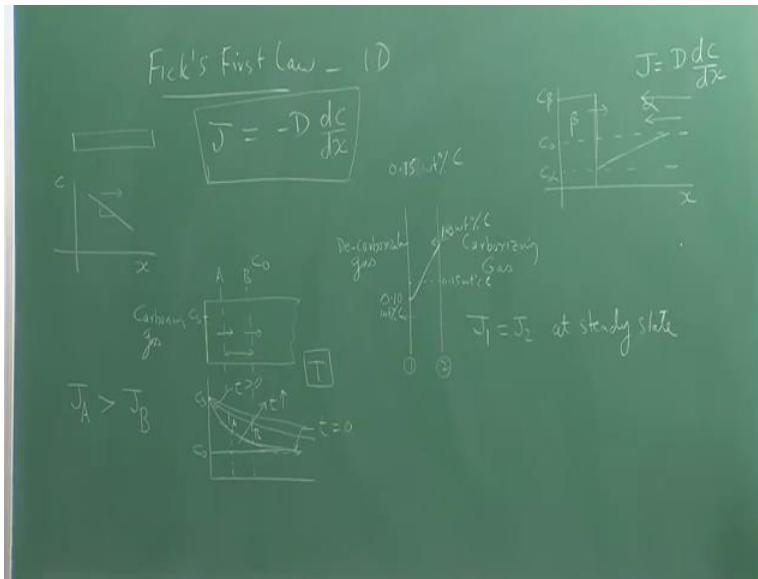 Fick's First Law - 1D
J = -D dc/dx
C
x
J = D dc/dx
Cβ
β
C₀
Cα
x
0.15 wt% C
De-carbonating gas
1.0 wt% C
Carbonizing Gas
0.15 wt% C
0.10 wt% C
① ②
J₁ = J₂ at steady state
A B C₀
Carbonizing gas
Cₛ
T
J_A > J_B
t>0
Cₛ
A
B
t↑
t=0
C₀